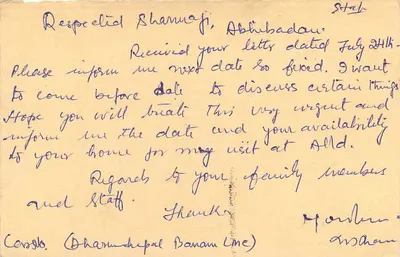 Respected Sharmaji,
Abhibadan.
Received your letter dated July 24th.
Please inform me next date so fixed. I want
to come before date to discuss certain things
Hope you will treat this very urgent and
inform me the date and your availability
to your home for my visit at Alld.
Regards to your family members
and Staff.
Thanks
(Dharmchapal Banam Line)